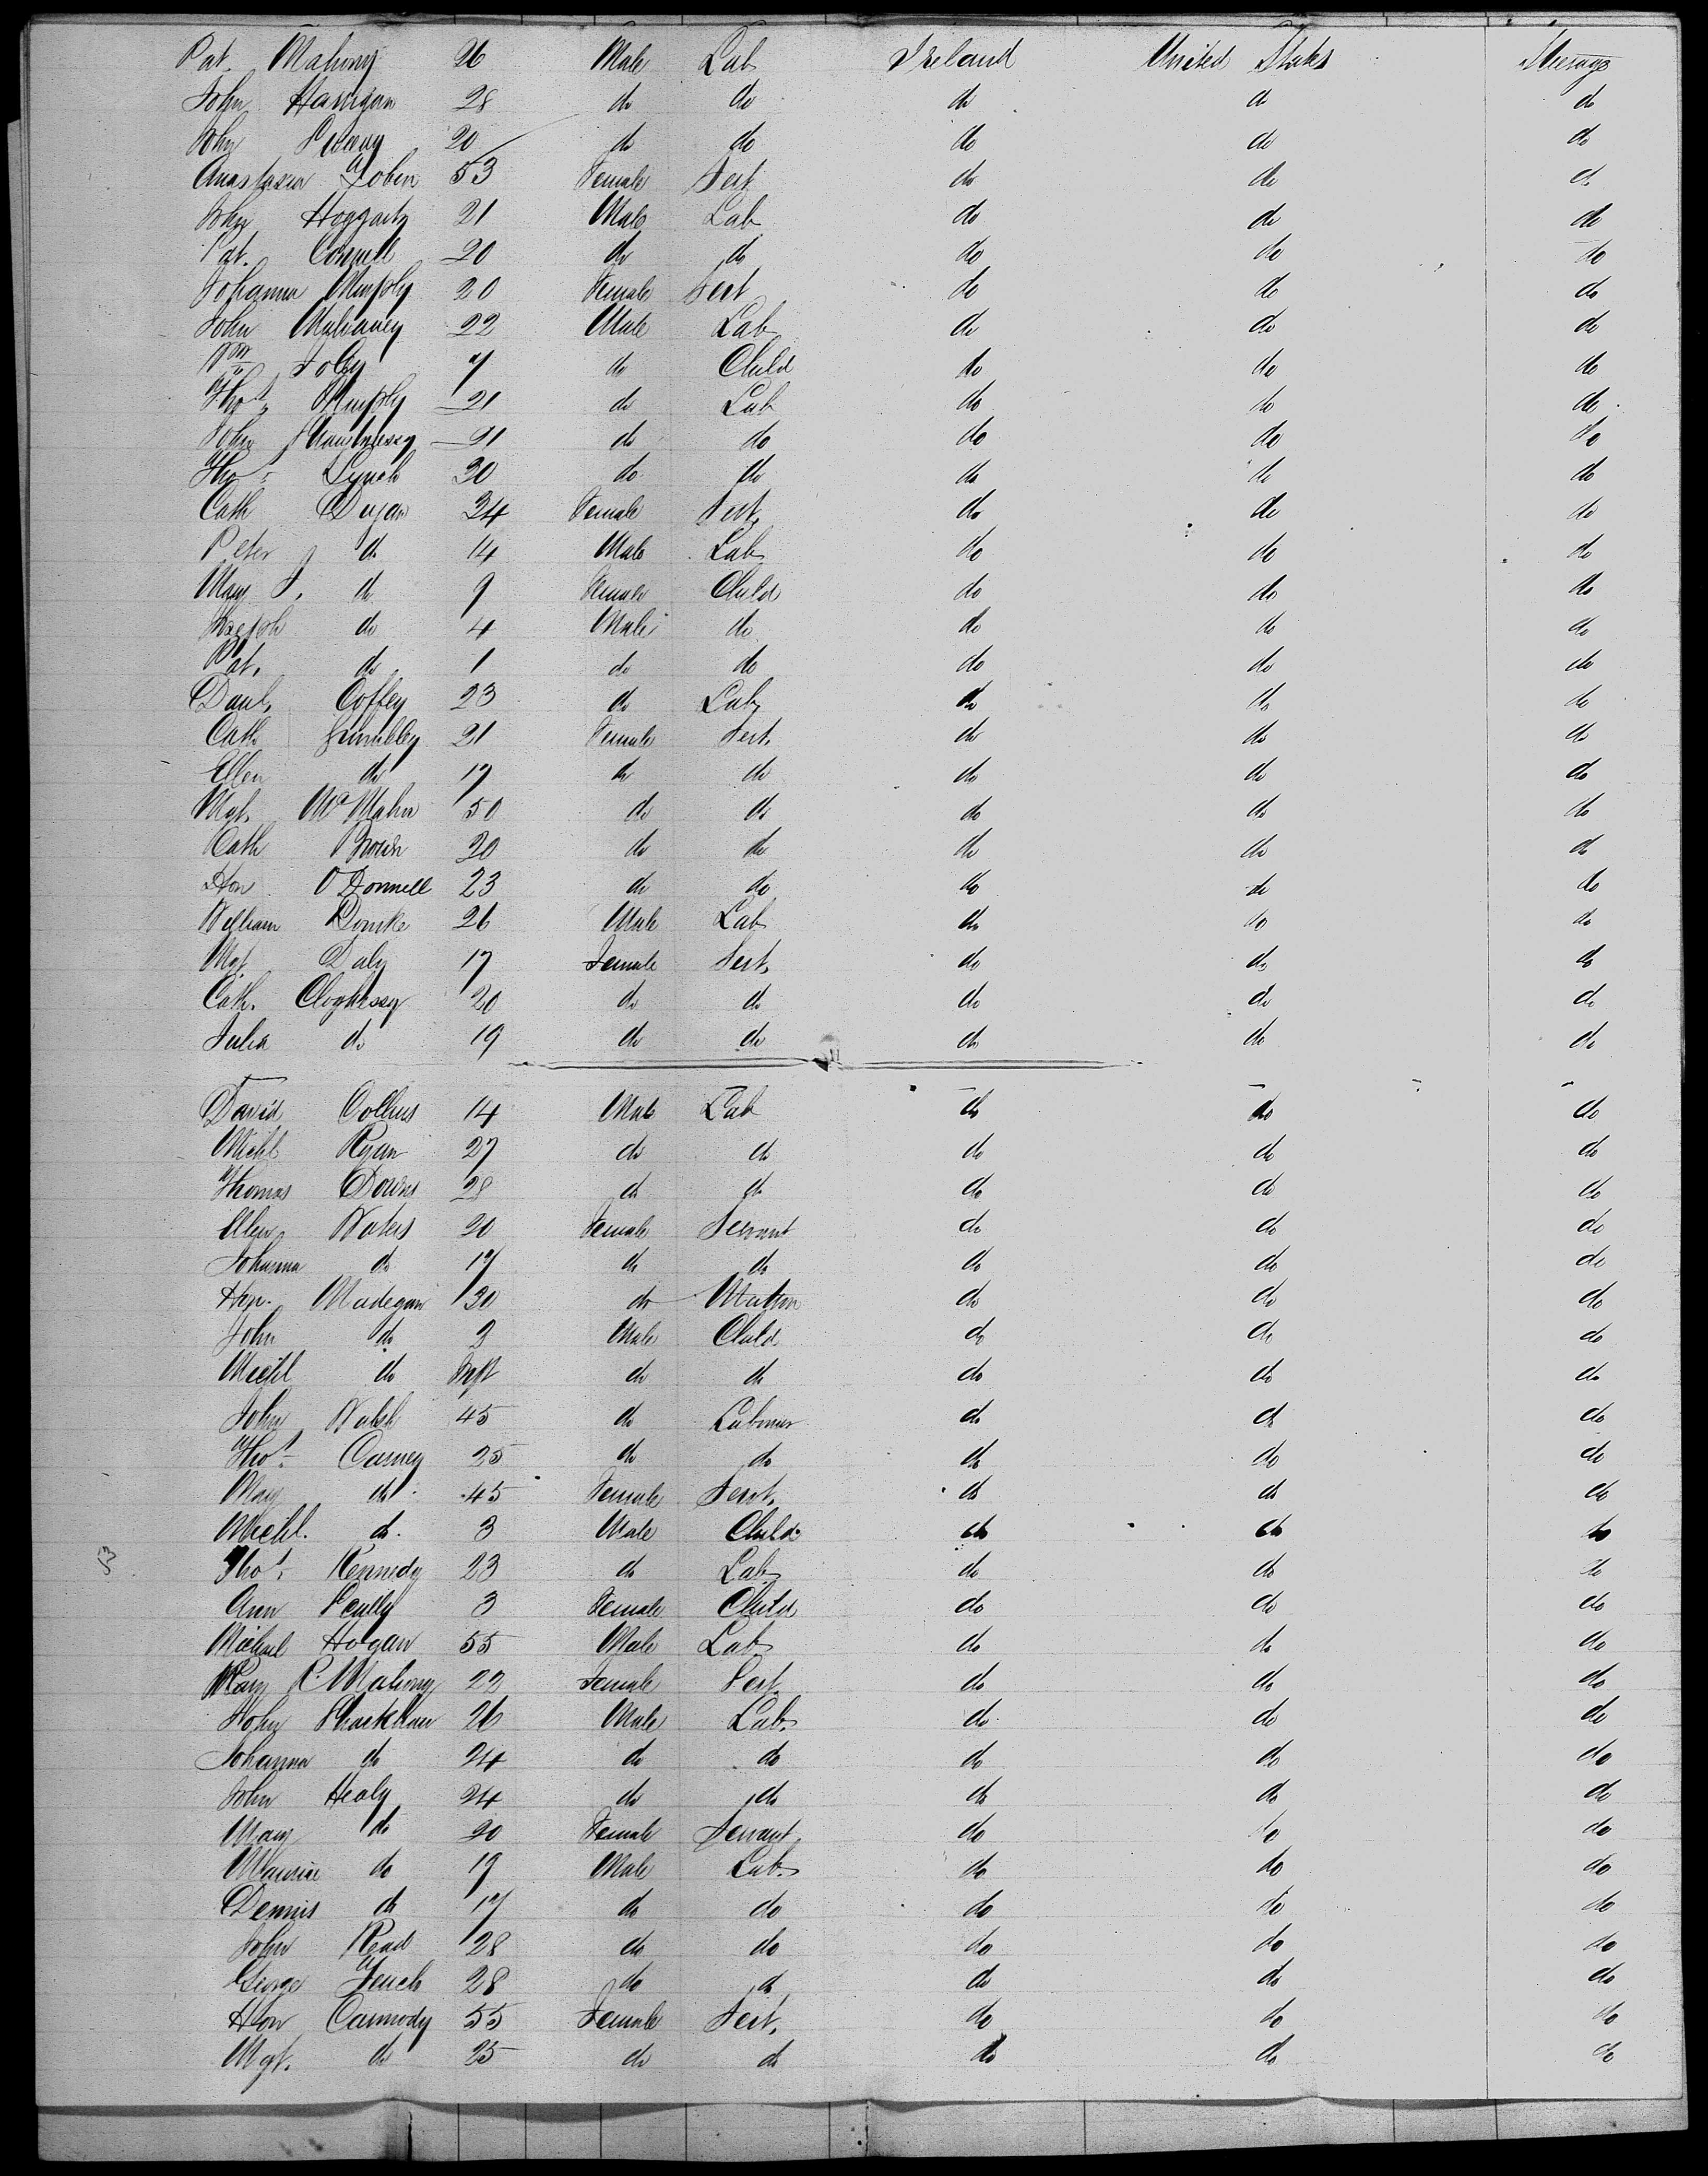 Pat. Mahony 26 Male Lab Ireland United States Steerage
John Hanigan 28 do do do do do
John 20 do do do do do
Anastasia Tobin 53 Female Sert do do do
John Hoggarty 21 Male Lab do do do
Pat. Connell 20 do do do do do
Johanna Murphy 20 Female Sert do do do
John Mulraney 22 Male Lab do do do
Wm Foley 7 do Child do do do
Thos Murphy 21 do Lab do do do
John Shaughnessy 21 do do do do do
Thos Lynch 30 do do do do do
Cath Dugan 34 Female Sert. do do do
Peter do 14 Male Lab do do do
Mary J. do 9 Female Child do do do
Joseph do 4 Male do do do do
Pat. do 1 do do do do do
Danl. Coffey 23 do Lab do do do
Cath 21 Female Sert. do do do
Ellen do 17 do do do do do
Mgt. McMahn 50 do do do do do
Cath Brown 20 do do do do do
Hon O'Donnell 23 do do do do do
William Bourke 26 Male Lab do do do
Mgt. Daly 17 Female Sert. do do do
Cath. Cloghessy 20 do do do do do
Julia do 19 do do do do do
David Collins 14 Male Lab do do do
Michl Ryan 27 do do do do do
Thomas Downs 28 do do do do do
Ellen Waters 20 Female Servant do do do
Johanna do 17 do do do do do
Hon. Madegan 30 do Matron do do do
John do 3 Male Child do do do
Michl do Inft do do do do do
John Walsh 45 do Labourer do do do
Thos Carney 25 do do do do do
Mary do 45 Female Servt. do do do
Michl. do. 3 Male Child do do do
Thos. Kennedy 23 do Lab do do do
Ann Scully 3 Female Child do do do
Michael Hogan 55 Male Lab do do do
Mary Mahony 22 Female Sert do do do
John 26 Male Lab. do do do
Johanna do 24 do do do do do
John Healy 24 do do do do do
Mary do 20 Female Servant do do do
Maurice do 19 Male Lab. do do do
Dennis do 17 do do do do do
John Read 28 do do do do do
George 28 do do do do do
Hon Carmody 55 Female Sert. do do do
Mgt. do 25 do do do do do